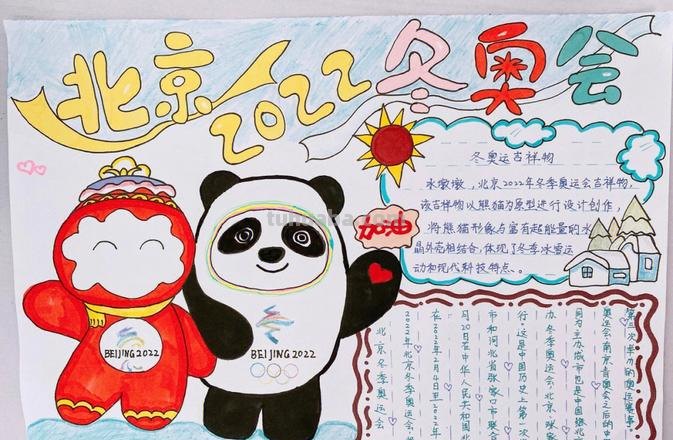 北京2022冬奥会
冬奥运吉祥物
冰墩墩,北京2022年冬季奥运会吉祥物,
该吉祥物以熊猫为原型进行设计创作,
将熊猫形象与富有超能量的冰
晶外壳相结合,体现了冬季冰雪运
动和现代科技特点。
加油
BEIJING 2022
BEIJING 2022
北京冬季奥运会
2022年北京冬季奥运会
在2022年2月4日至2022
月20日在中华人民共和国
市和河北省张家口市联合
行。这是中国历史上第一次
办冬季奥运会,北京、张家
同为主办城市也是中国继北
奥运会南京青奥会之后的中
第三次举办的奥运赛事。